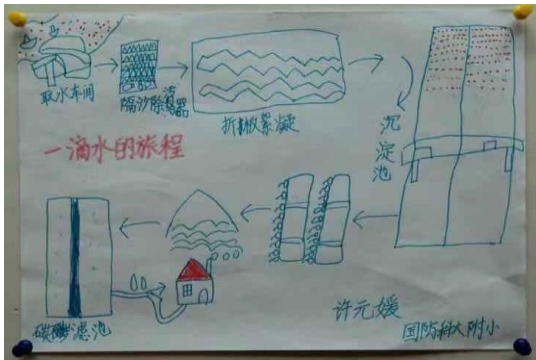 取水车间
隔沙除渣器
折板絮凝
沉淀池
一滴水的旅程
碳砂滤池
许元媛
国防科大附小